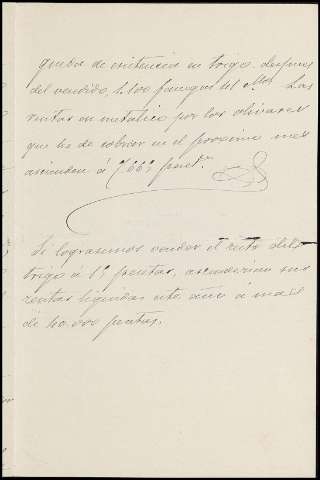 queda de existencia en trigo despues
del vendido, 2.100 fanegas del Las
rentas en metalico por los olivares
que ha de cobrar en el proximo mes
ascienden á 7.669 
Si lograsemos vender el resto del
trigo á 15 pesetas, ascenderian sus
rentas liquidas este año á mas
de 40.000 pesetas.